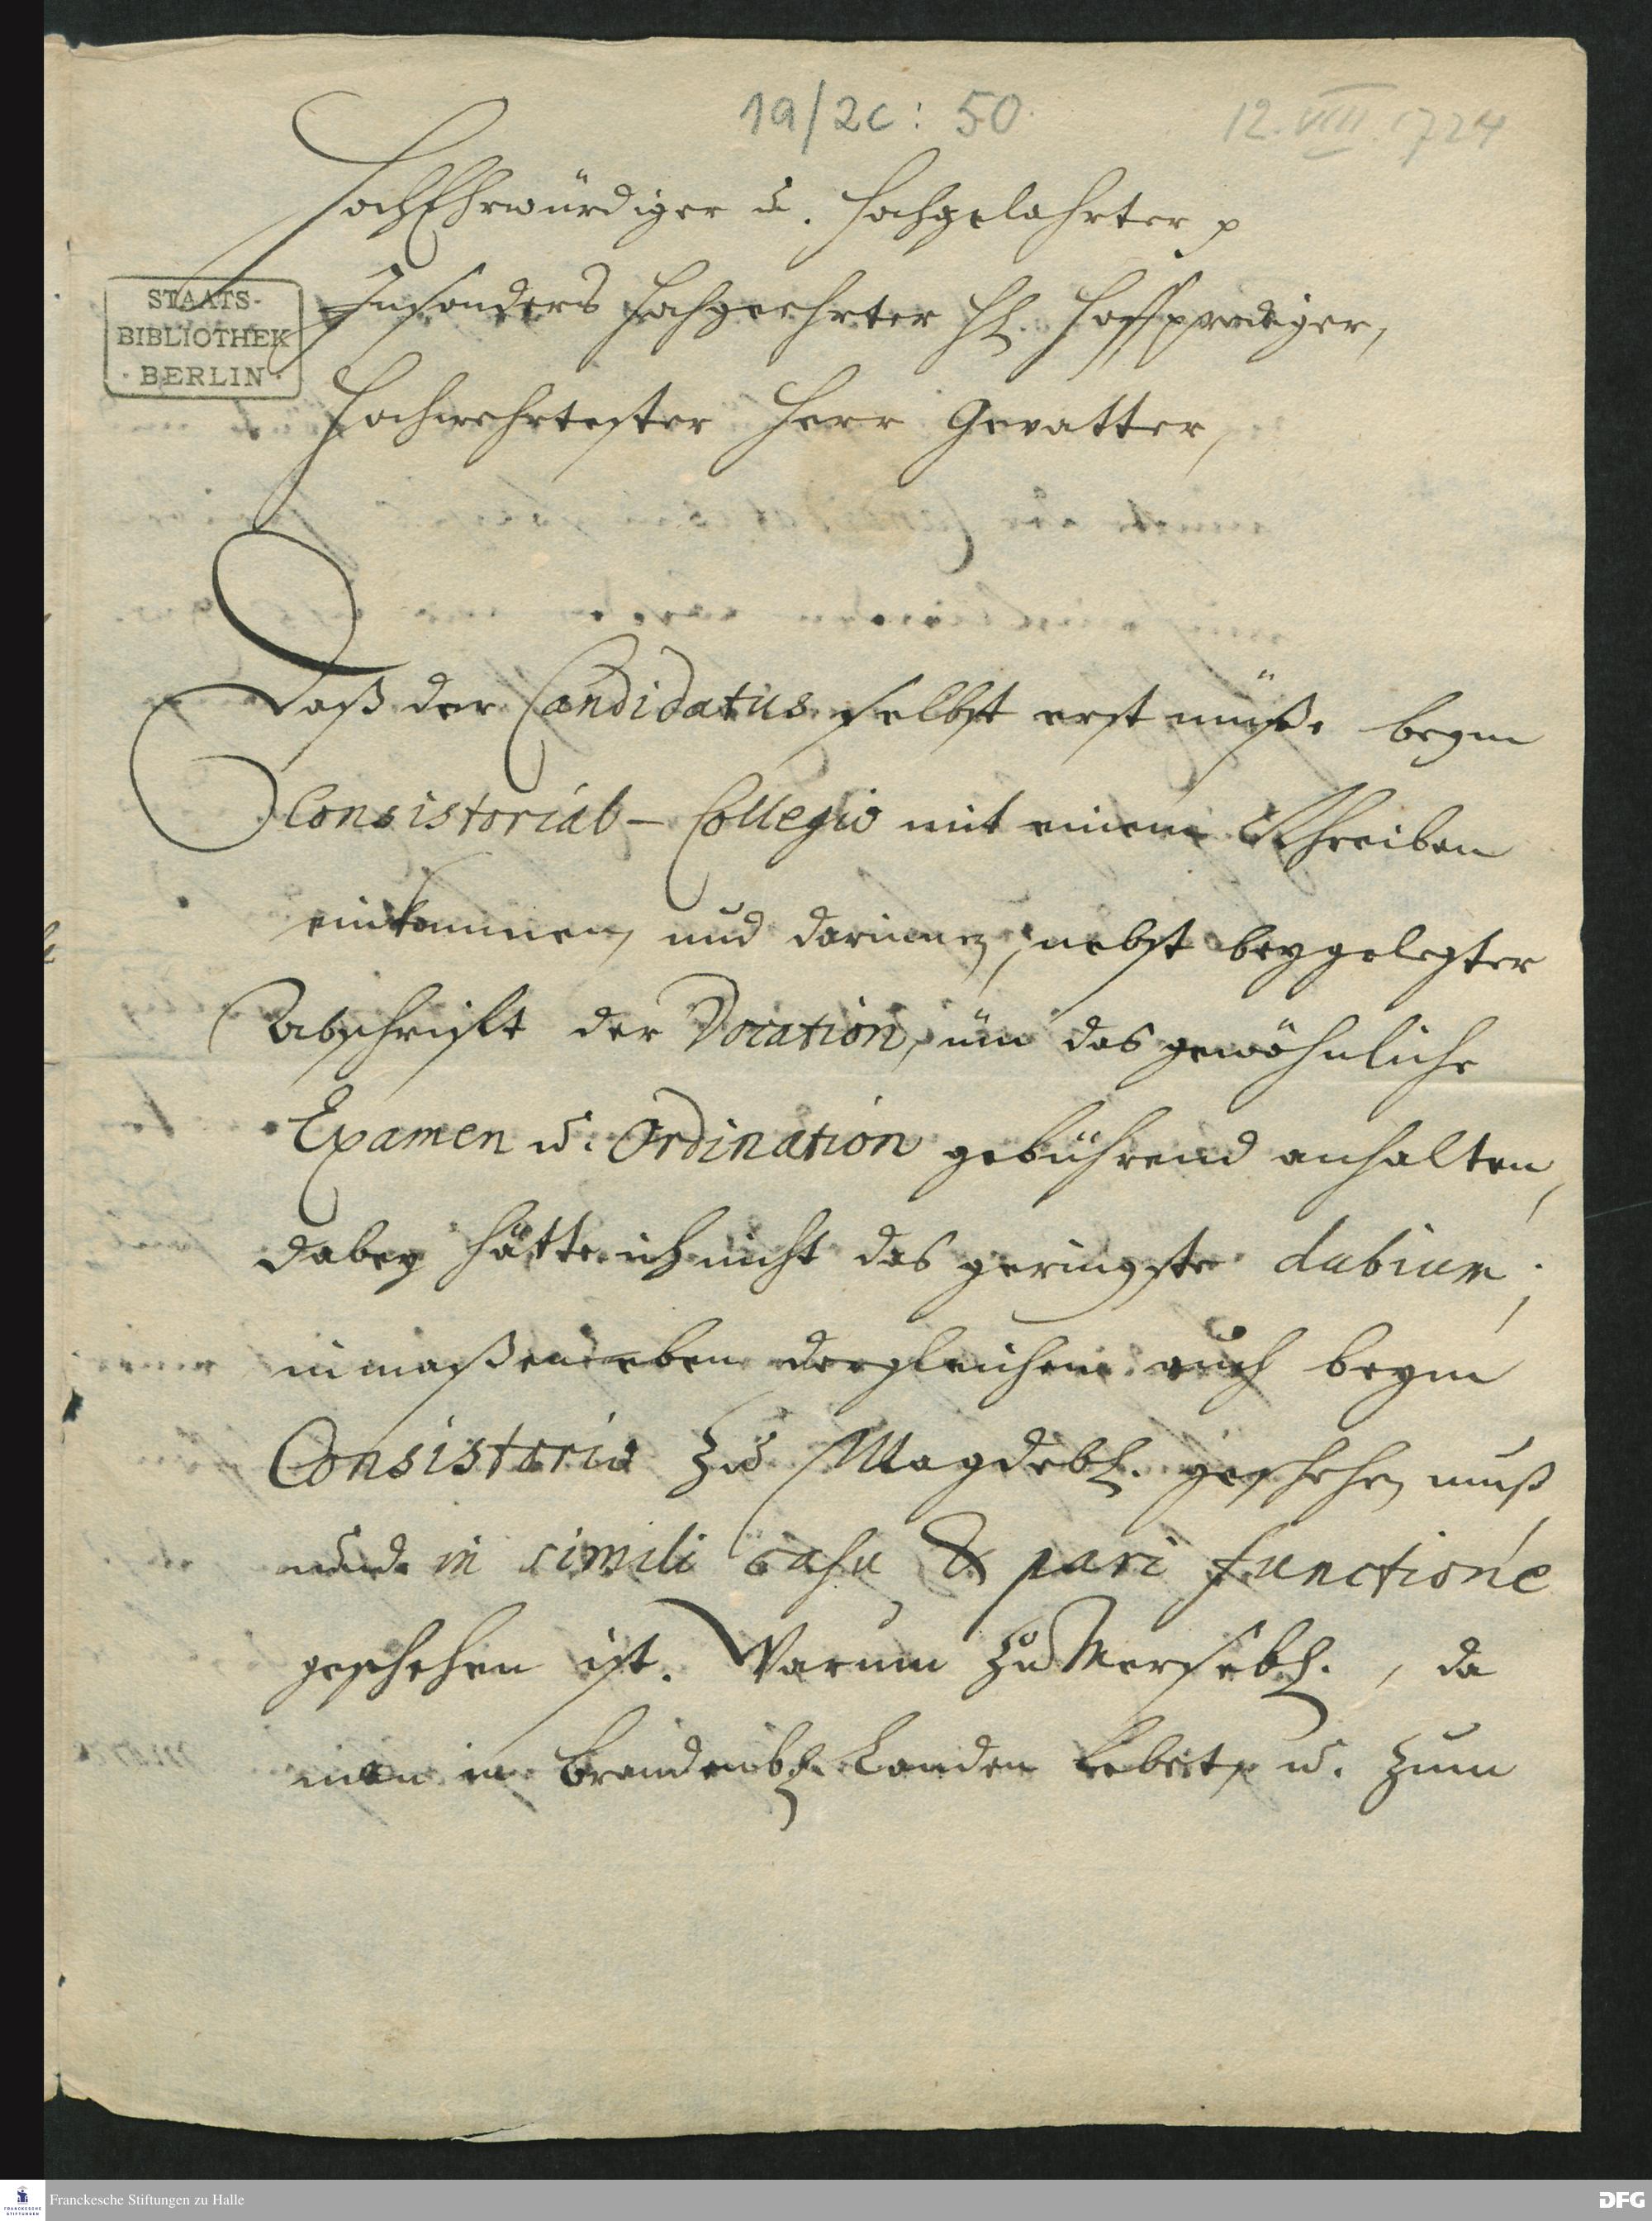 1a/2c : 50
12. VIII. 1724
HochEhrwürdiger u. Hochgelahrter p
Insonders Hochgeehrter H. Hoffprediger,
Hochwehrtester Herr Gevatter,
STAATS-
BIBLIOTHEK
· BERLIN ·
Daß der Candidatus selbst erst müße beym
Consistorial-Collegio mit einem Schreiben
einkommen und darinnen, nebst beygelegter
Abschrifft der Vocation, üm das gewöhnliche
Examen u. Ordination gebührend anhalten,
dabey hätte ich nicht das geringste dubium;
inmaßen eben dergleichen auch beym
Consistorio zu Magdeb. geschehen muß
und in simili casu & pari functione
geschehen ist. Warum zu Merseb. , da
man in Brandenb. Landen lebet, u. zum
Franckesche Stiftungen zu Halle
FRANCKESCHE
STIFTUNGEN
DFG